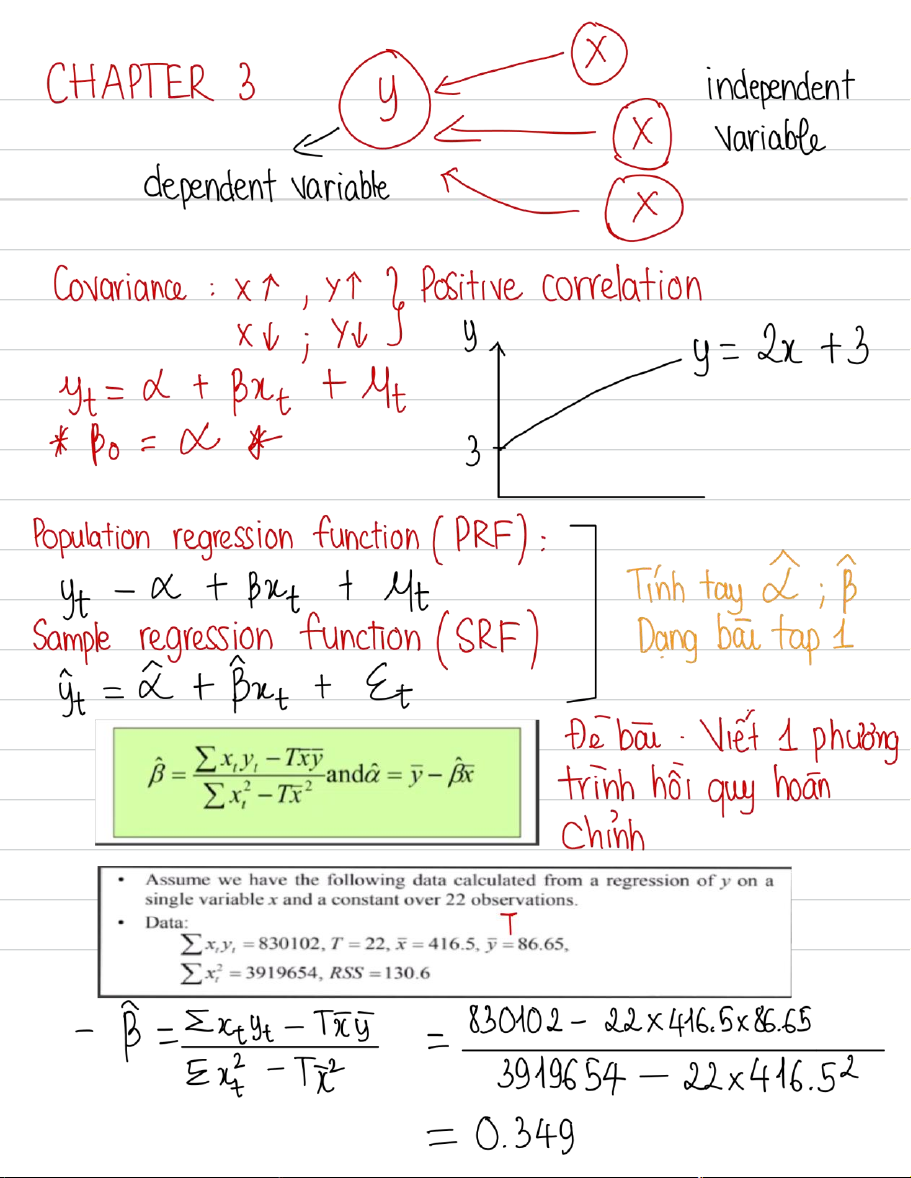 CHAPTER 3
y
X
X
X
independent
variable
dependent variable
Covariance : X↑ , Y↑ } Positive correlation
X↓ ; Y↓
y
y = 2x + 3
3
yₜ = α + βxₜ + μₜ
* β₀ = α *
Population regression function (PRF) :
yₜ - α + βxₜ + μₜ
Sample regression function (SRF)
ŷₜ = α̂ + β̂xₜ + εₜ
Tính tay α̂ ; β̂
Dạng bài tap 1
β̂ = (∑xₜyₜ − Tx̄ȳ) / (∑xₜ² − Tx̄²) and α̂ = ȳ − β̂x̄
Đề bài . Viết 1 phương
trình hồi quy hoàn
Chỉnh
• Assume we have the following data calculated from a regression of y on a
single variable x and a constant over 22 observations.
• Data:
T
∑xₜyₜ = 830102, T = 22, x̄ = 416.5, ȳ = 86.65,
∑xₜ² = 3919654, RSS = 130.6
- β̂ = (Σxₜyₜ − Tx̄ȳ) / (Σxₜ² − Tx̄²) = (830102 − 22×416.5×86.65) / (3919654 − 22×416.5²)
= 0.349